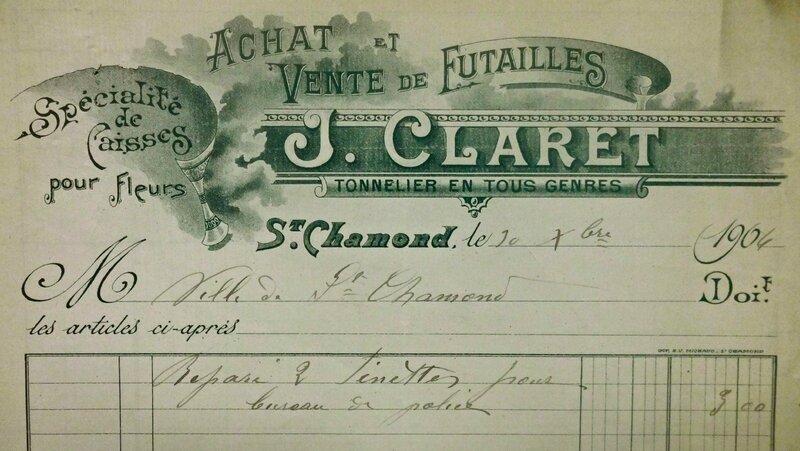 ACHAT ET
VENTE DE FUTAILLES
Spécialité
de
Caisses
pour Fleurs
J. CLARET
TONNELIER EN TOUS GENRES
ST. Chamond, le 30 Xbre 1904
M Ville de St Chamond Doit
les articles ci-après
Réparé 2 Tinettes pour
bureau de police 3 00